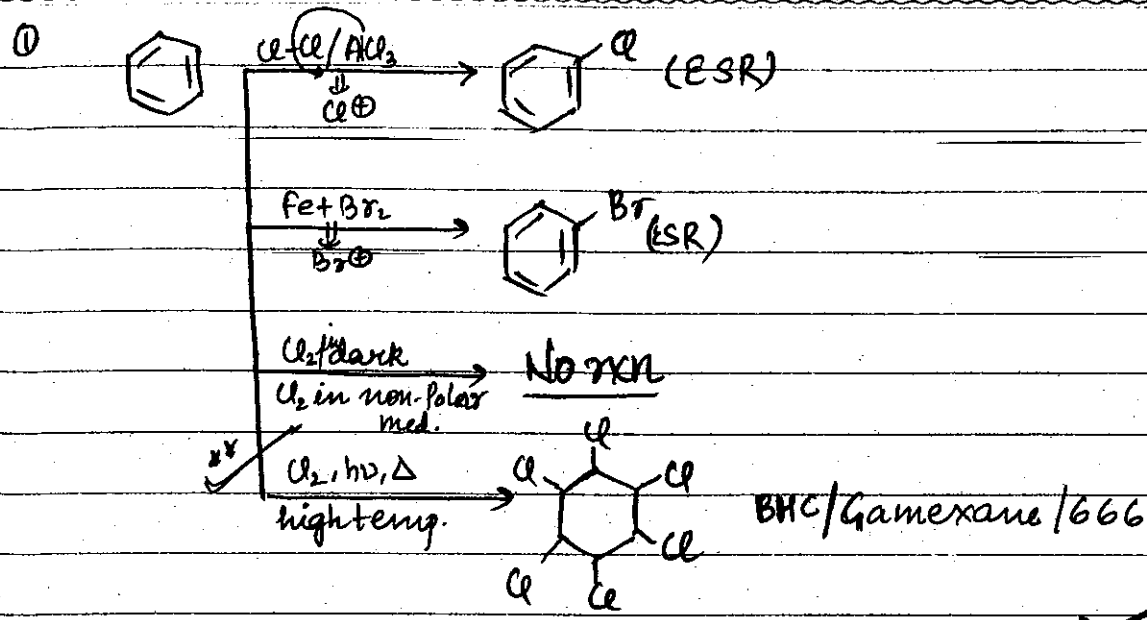 ①
Cl-Cl/AlCl₃
⇓
Cl⊕
Cl
(ESR)
Fe+Br₂
⇓
Br⊕
Br
(ESR)
Cl₂/in dark
No rxn
Cl₂ in non-Polar
med.
**
Cl₂, hν, Δ
high temp.
Cl
Cl
Cl
Cl
Cl
Cl
BHC/Gamexane/666